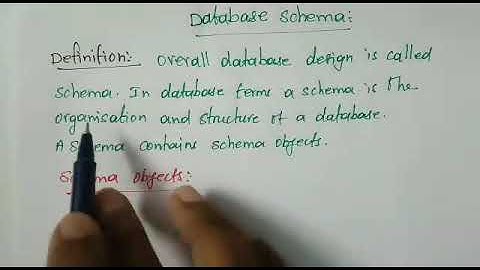 Database Schema:
Definition: overall database design is called
schema. In database terms a schema is the
organisation and structure of a database.
A schema contains schema objects.
Schema objects: